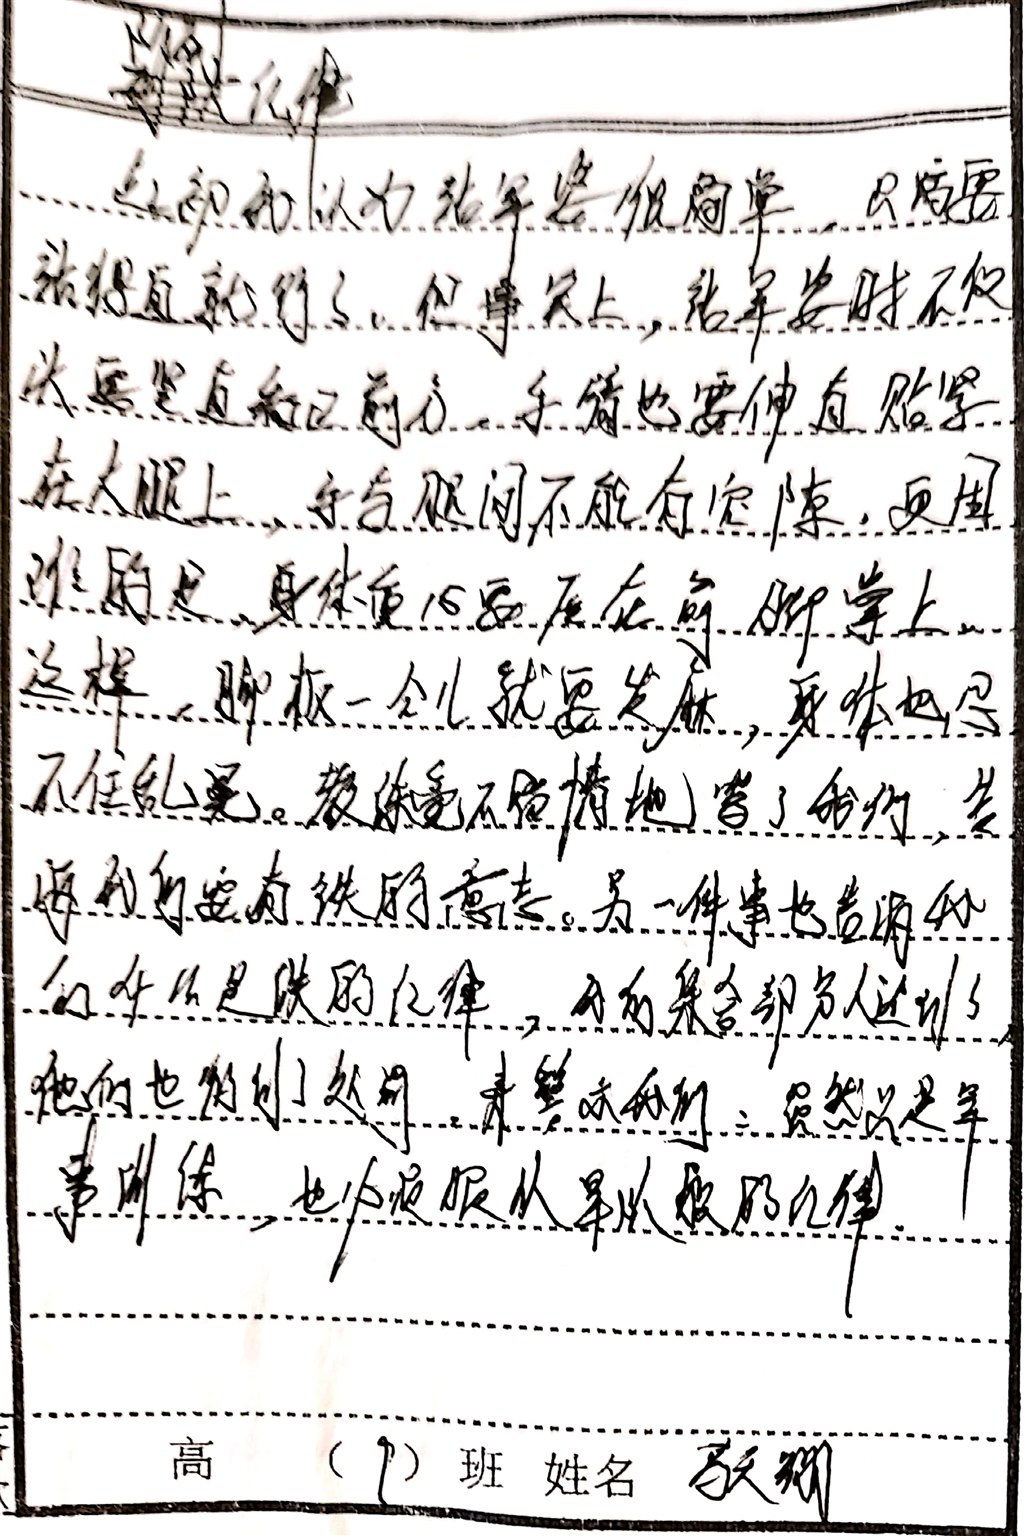 纪律
起初我认为站军姿很简单，只需要
站得直就行了。但事实上，站军姿时不仅
要竖直看正前方，手臂也要伸直贴紧
在大腿上，手与腿间不能有空隙，更困
难的是，身体重心要压在前脚掌上。
这样，脚板一会儿就要发麻，身体也忍
不住乱晃。教练毫不留情地了我们，告
诲我们要有铁的意志。另一件事也告诲我
们什么是铁的纪律，集合部分人迟到了，
他们也得到了处罚，来警示我们：虽然只是军
事训练，也必须服从军队般的纪律。
高 （ ）班 姓名